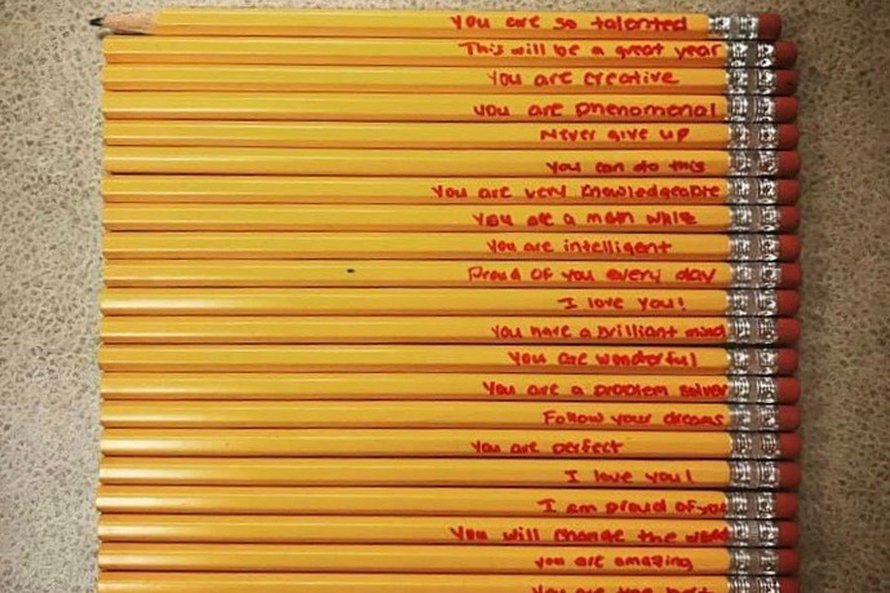 You are so talented
This will be a great year
you are creative
you are phenomenal
Never give up
you can do this
You are very knowledgeable
You are a math whiz
you are intelligent
Proud of you every day
I love you!
you have a brilliant mind
You are wonderful
You are a problem solver
Follow your dreams
You are perfect
I love you!
I am proud of you
You will change the world
you are amazing
You are the best